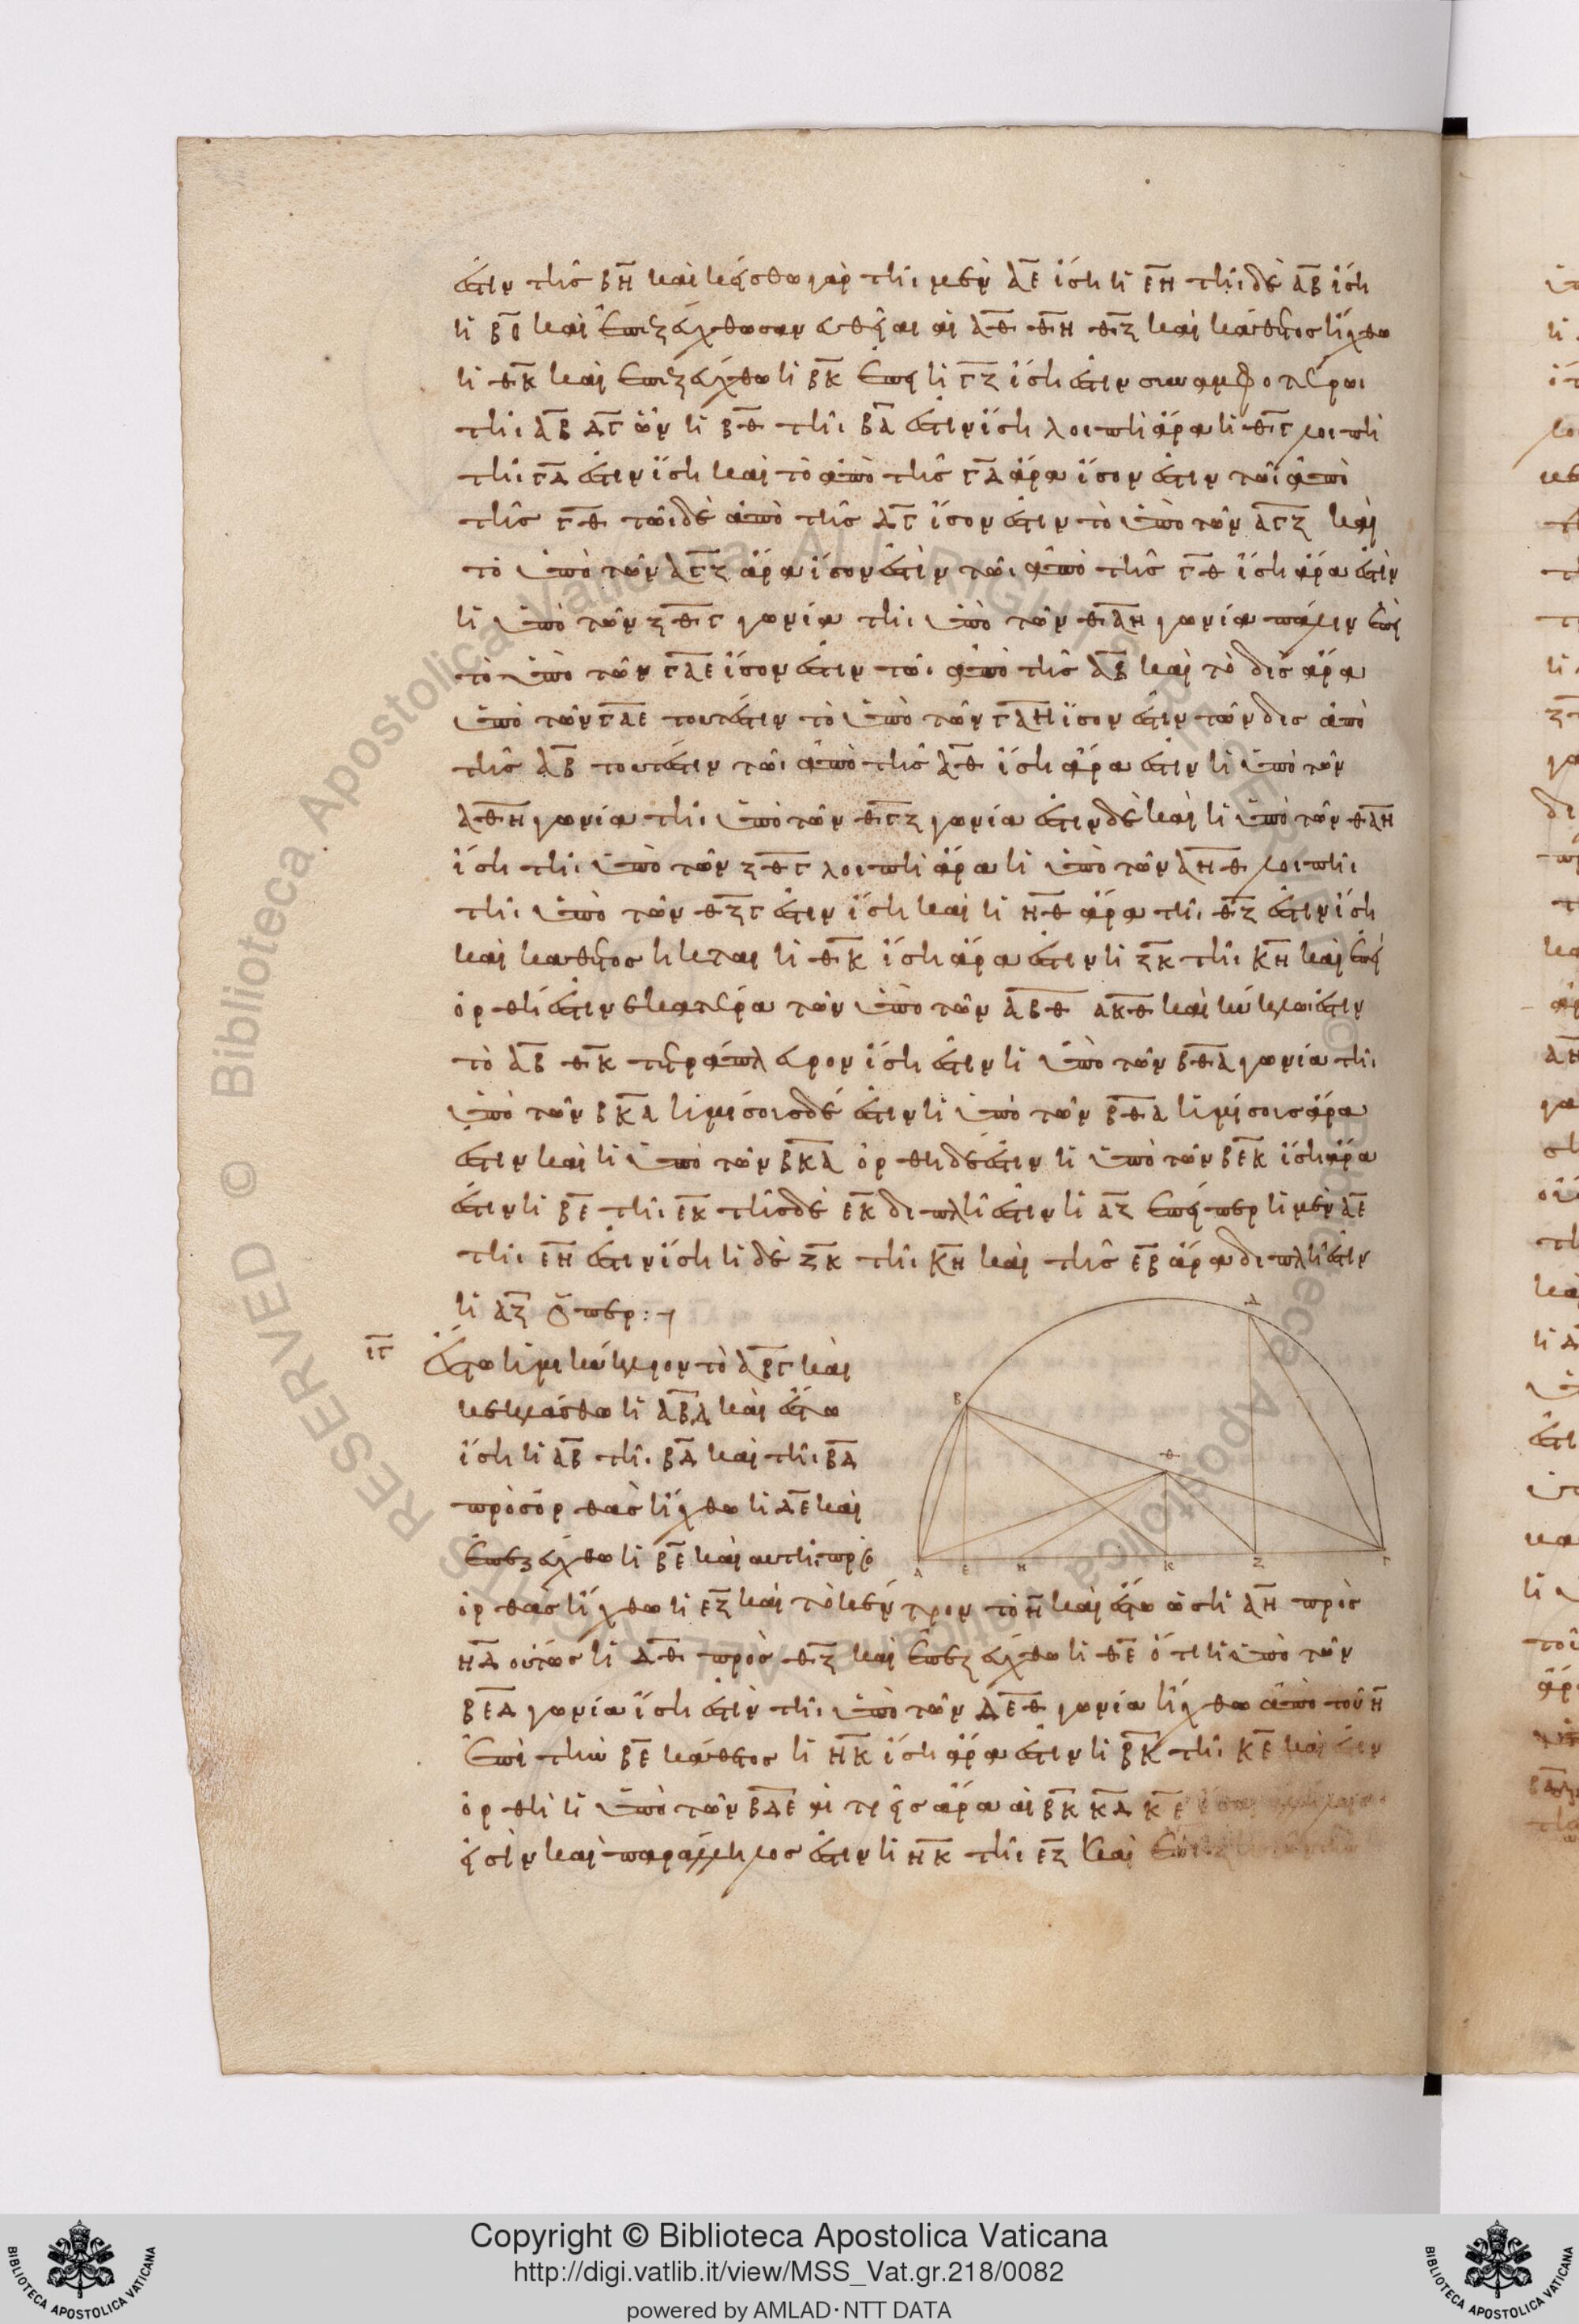 ἐστιν τῆς ΒΗ καὶ κείσθω γὰρ τῆι μὲν ΑΕ ἴση ἡ ΕΗ τῆι δὲ ΑΒ ἴση
ἡ ΒΘ καὶ ἐπιζεύχθωσαν εὐθεῖαι αἱ ΑΘ ΘΗ ΘΖ καὶ κάθετος ἤχθω
ἡ ΘΚ καὶ ἐπιζεύχθω ἡ ΒΚ ἐπεὶ ἡ ΓΖ ἴση ἐστιν συναμφοτέρωι
τῆι ΑΒ ΔΓ ὧν ἡ ΒΘ τῆι ΒΑ ἐστιν ἴση λοιπὴ ἄρα ἡ ΘΓ λοιπῆ
τῆι ΓΔ ἐστιν ἴση καὶ τὸ ἀπὸ τῆς ΓΔ ἄρα ἴσον ἐστιν τῶι ἀπὸ
τῆς ΓΘ τῶι δὲ ἀπὸ τῆς ΔΓ ἴσον ἐστιν τὸ ὑπὸ τῶν ΑΓΖ καὶ
τὸ ὑπὸ τῶν ΑΓΖ ἄρα ἴσον ἐστὶν τῶι ἀπὸ τῆς ΓΘ ἴση ἄρα ἐστὶν
ἡ ὑπὸ τῶν ΖΘΓ γωνία τῆι ὑπὸ τῶν ΘΑΗ γωνία πάλιν ἐπεὶ
τὸ ὑπὸ τῶν ΓΑΕ ἴσον ἐστιν τῶι ἀπὸ τῆς ΑΒ καὶ τὸ δὶς ἄρα
ὑπὸ τῶν ΓΑΕ τουτέστιν τὸ ὑπὸ τῶν ΓΑΗ ἴσον ἐστιν τῶν δὶς ἀπὸ
τῆς ΑΒ τουτέστιν τῶι ἀπὸ τῆς ΑΘ ἴση ἄρα ἐστιν ἡ ὑπὸ τῶν
ΑΘΗ γωνία τῆι ὑπὸ τῶν ΘΓΖ γωνία ἐστιν δὲ καὶ ἡ ὑπὸ τῶν ΘΑΗ
ἴση τῆι ὑπὸ τῶν ΖΘΓ λοιπὴ ἄρα ἡ ὑπὸ τῶν ΑΗΘ λοιπῆι
τῆι ὑπὸ τῶν ΘΖΓ ἐστιν ἴση καὶ ἡ ΗΘ ἄρα τῆι ΘΖ ἐστιν ἴση
καὶ κάθετος ἦκται ἡ ΘΚ ἴση ἄρα ἐστιν ἡ ΖΚ τῆι ΚΗ καὶ ἐπεὶ
ὀρθή ἐστιν ἑκατέρα τῶν ὑπὸ τῶν ΑΒΘ ΑΚΘ καὶ κύκλωι ἐστιν
τὸ ΑΒ ΘΚ τετράπλευρον ἴση ἐστιν ἡ ὑπὸ τῶν ΒΘΑ γωνία τῆι
ὑπὸ τῶν ΒΚΑ ἡμίσοις δέ ἐστιν ἡ ὑπὸ τῶν ΒΘΑ ἡμίσοις ἄρα
ἐστιν καὶ ἡ ὑπὸ τῶν ΒΚΑ ὀρθη δέ ἐστιν ἡ ὑπὸ τῶν ΒΕΚ ἴση ἄρα
ἐστιν ἡ ΒΕ τῆι ΕΚ τῆς δὲ ΕΚ διπλῆ ἐστιν ἡ ΑΖ ἐπείπερ ἡ μὲν ΑΕ
τῆι ΕΗ ἐστιν ἴση ἡ δὲ ΖΚ τῆι ΚΗ καὶ τῆς ΕΒ ἄρα διπλῆ ἐστιν
ἡ ΑΖ ὅπερ :
ΙΓ Ἔστω ἡμικύκλιον τὸ ΑΒΓ καὶ
κεκλάσθω ἡ ΑΒΔ καὶ ἔστω
ἴση ἡ ΑΒ τῆι ΒΔ καὶ τῆι ΒΔ
πρὸς ὀρθὰς ἤχθω ἡ ΔΕ καὶ
ἐπεζεύχθω ἡ ΒΕ καὶ αυτῆι πρὸς
ὀρθὰς ἤχθω ἡ ΕΖ καὶ τὸ κέντρον τὸ Η καὶ ἔστω ὡς ἡ ΑΗ πρὸς
ΗΔ οὕτως ἡ ΔΘ πρὸς ΘΖ καὶ ἐπεζεύχθω ἡ ΘΕ ὅτι ἡ ὑπὸ τῶν
ΒΕΔ γωνία ἴση ἐστὶν τῆι ὑπὸ τῶν ΔΕΘ γωνία ἤχθω ἀπὸ τοῦ Η
ἐπὶ τὴν ΒΕ κάθετος ἡ ΗΚ ἴση ἄρα ἐστιν ἡ ΒΚ τῆι ΚΕ καὶ ἐστιν
ὀρθὴ ἡ ὑπὸ τῶν ΒΔΕ αἱ τρεῖς ἄρα αἱ ΒΚ ΚΔ ΚΕ
εἰσὶν καὶ παράλληλος ἐστιν ἡ ΗΚ τῆι ΕΖ καὶ
Β Δ Θ Α Ε Η Κ Ζ Γ
RESERVED © Biblioteca Apostolica Vaticana, ALL RIGHTS RESERVED © Biblioteca Apostolica Vaticana, ALL RIGHTS
BIBLIOTECA APOSTOLICA VATICANA
Copyright © Biblioteca Apostolica Vaticana
http://digi.vatlib.it/view/MSS_Vat.gr.218/0082
powered by AMLAD·NTT DATA
BIBLIOTECA APOSTOLICA VATICANA